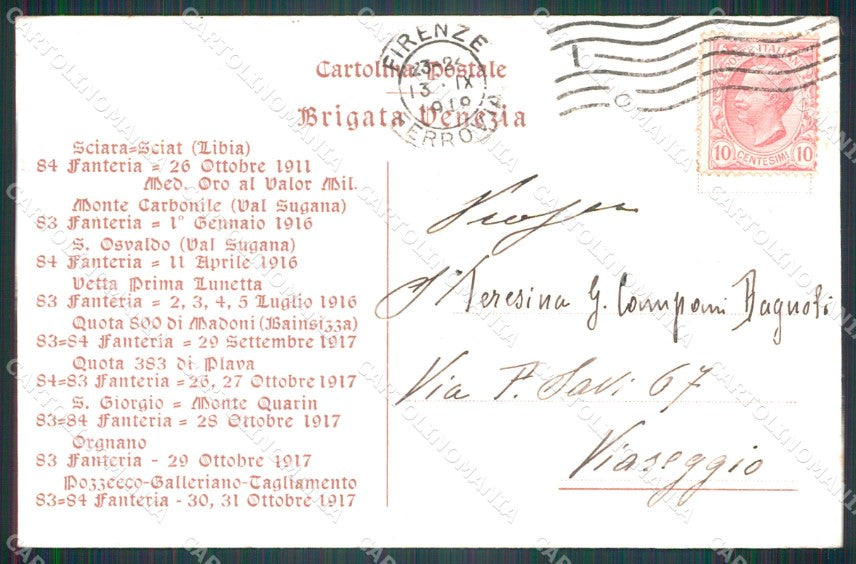 FIRENZE
FERROVIA
13 · IX
POSTE ITALIANE
10 CENTESIMI 10
Cartolina Postale
Brigata Venezia
Sciara=Sciat (Libia)
84 Fanteria = 26 Ottobre 1911
Med. Oro al Valor Mil.
Monte Carbonile (Val Sugana)
83 Fanteria = 1° Gennaio 1916
S. Osvaldo (Val Sugana)
84 Fanteria = 11 Aprile 1916
Vetta Prima Lunetta
83 Fanteria = 2, 3, 4, 5 Luglio 1916
Quota 800 di Madoni (Bainsizza)
83=84 Fanteria = 29 Settembre 1917
Quota 383 di Plava
84=83 Fanteria = 26, 27 Ottobre 1917
S. Giorgio = Monte Quarin
83=84 Fanteria = 28 Ottobre 1917
Orgnano
83 Fanteria - 29 Ottobre 1917
Pozzecco-Galleriano-Tagliamento
83=84 Fanteria - 30, 31 Ottobre 1917
Teresina G. Campani Bagnoli
Via P. Savi 67
Viareggio
CARTOLINOMANIA